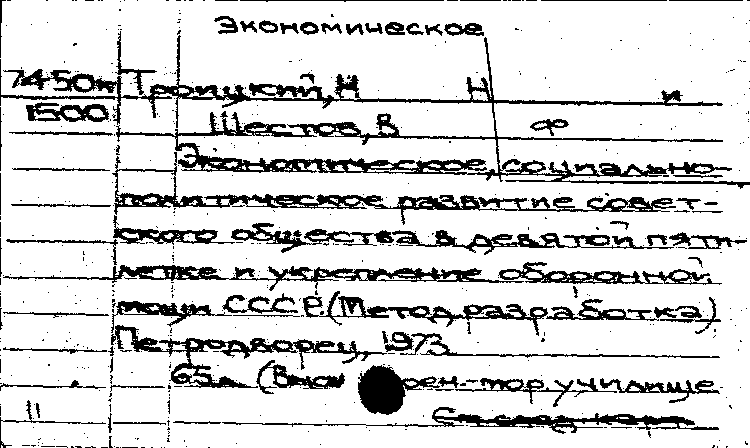 Экономическое
7450н Троицкий, Н Н и
1500 Шестов, В Ф
Экономическое, социально-
политическое развитие совет-
ского общества в девятой пяти-
летке и укрепление оборонной
мощи СССР. (Метод. разработка)
Петродворец, 1973
65л. (Высш. воен.-мор. училище
См. след. карт.
11